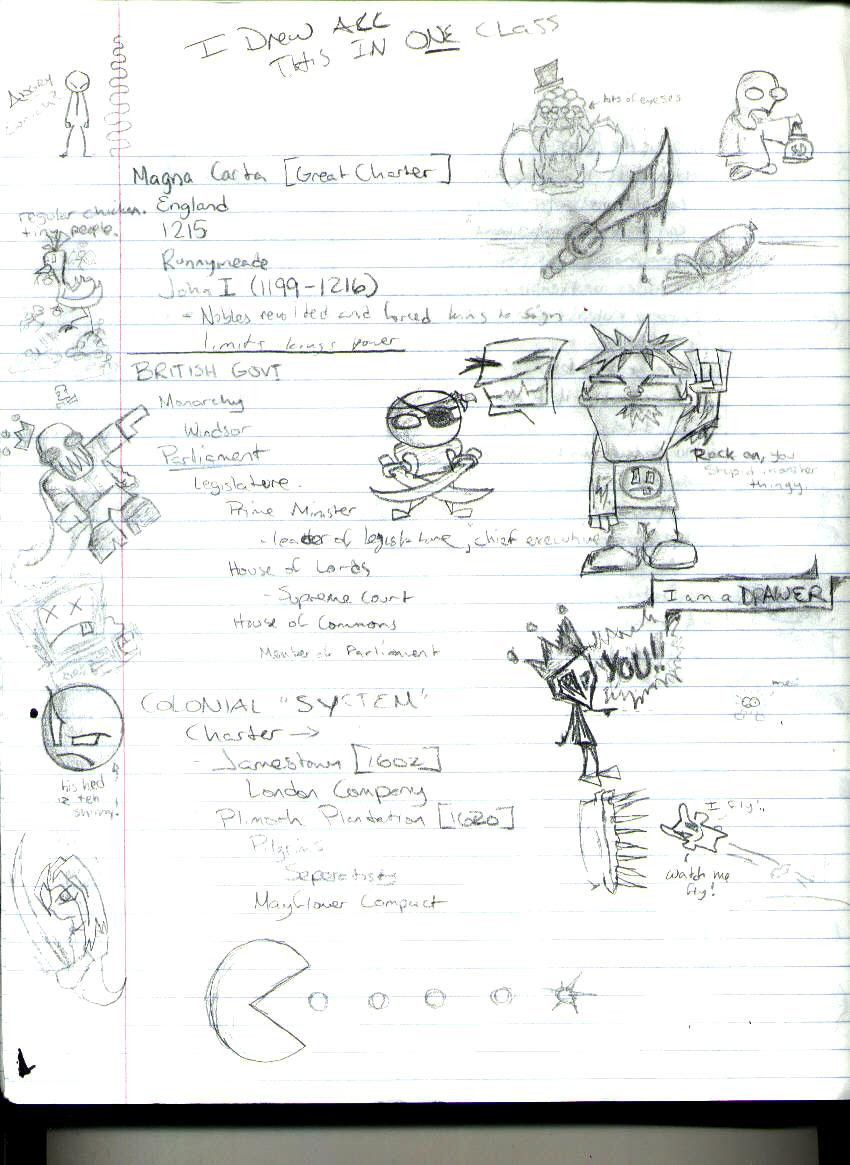 I DREW ALL
THIS IN ONE CLASS
Angry
lots of eyeses
Magna Carta [Great Charter]
regular chicken.
tiny people.
England
1215
Runnymeade
John I (1199-1216)
- Nobles revolted and forced king to sign
limits kings power
BRITISH GOVT
Monarchy
Windsor
Parliament
Legislature
Prime Minister
- leader of legislature, chief executive
House of Lords
- Supreme Court
House of Commons
Member of Parliament
Rock on, you
stupid monster
thingy.
I am a DRAWER
YOU!!
me
COLONIAL "SYSTEM"
Charter →
- Jamestown [1602]
London Company
Plimoth Plantation [1620]
Pilgrims
Seperatists
Mayflower Compact
his hed
is teh
shiny!
I fly!
watch me
fly!